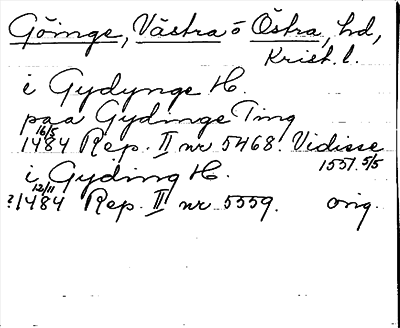 Göinge, Västra o Östra, hd,
Krist. l.
i Gydynge H.
paa Gydinge Ting
16/5 1484 Rep. II nr 5468. Vidisse
1551 5/5
i Gyding H.
?12/11 1484 Rep. II nr 5559. orig.